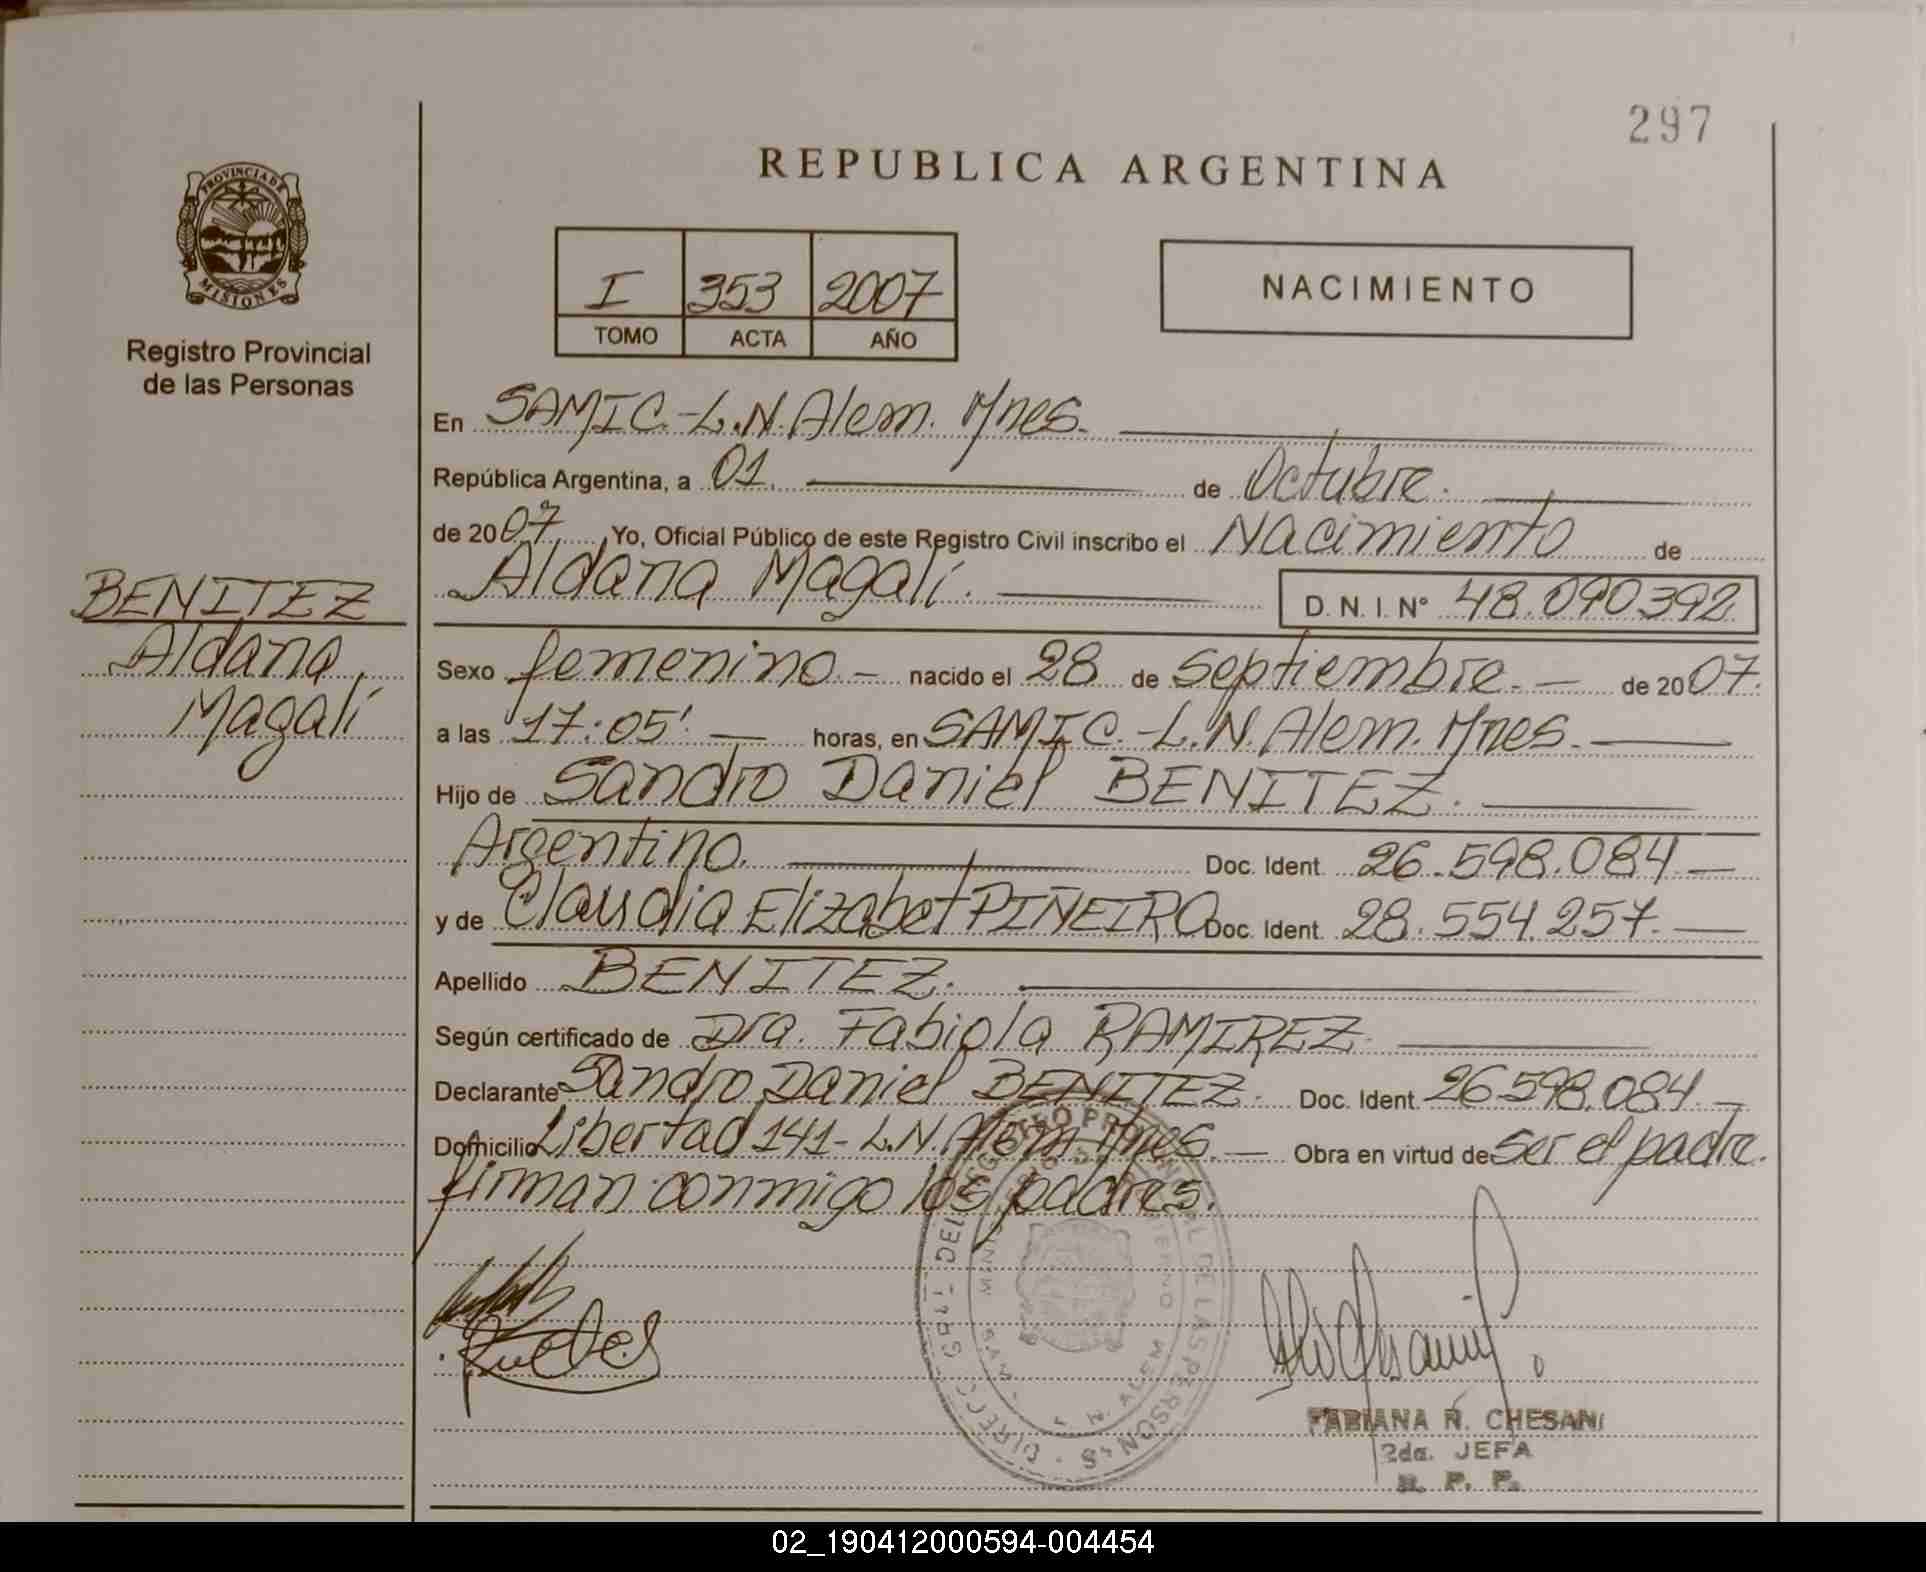 297
REPUBLICA ARGENTINA
PROVINCIA DE
MISIONES
Registro Provincial
de las Personas
I 353 2007
TOMO ACTA AÑO
NACIMIENTO
En SAMIC.-L.N.Alem. Mnes.
República Argentina, a 01. de Octubre.
de 2007 Yo, Oficial Público de este Registro Civil inscribo el Nacimiento de
Aldana Magalí. D. N. I. Nº 48.090392
BENITEZ
Aldana
Magalí
Sexo femenino.- nacido el 28 de septiembre.- de 2007.
a las 17:05' horas, en SAMIC.-L.N.Alem. Mnes.
Hijo de Sandro Daniel BENITEZ.
Argentino. Doc. Ident. 26.598.084.-
y de Claudia Elizabet PIÑEIRO Doc. Ident. 28.554.257.-
Apellido BENITEZ.
Según certificado de Dra. Fabiola RAMIREZ.
Declarante Sandro Daniel BENITEZ. Doc. Ident. 26.598.084.-
Domicilio Libertad 141- L.N. Alem. Mnes.- Obra en virtud de ser el padre.
firman conmigo los padres.
FABIANA R. CHESANI
2da. JEFA
R. P. P.
02_190412000594-004454